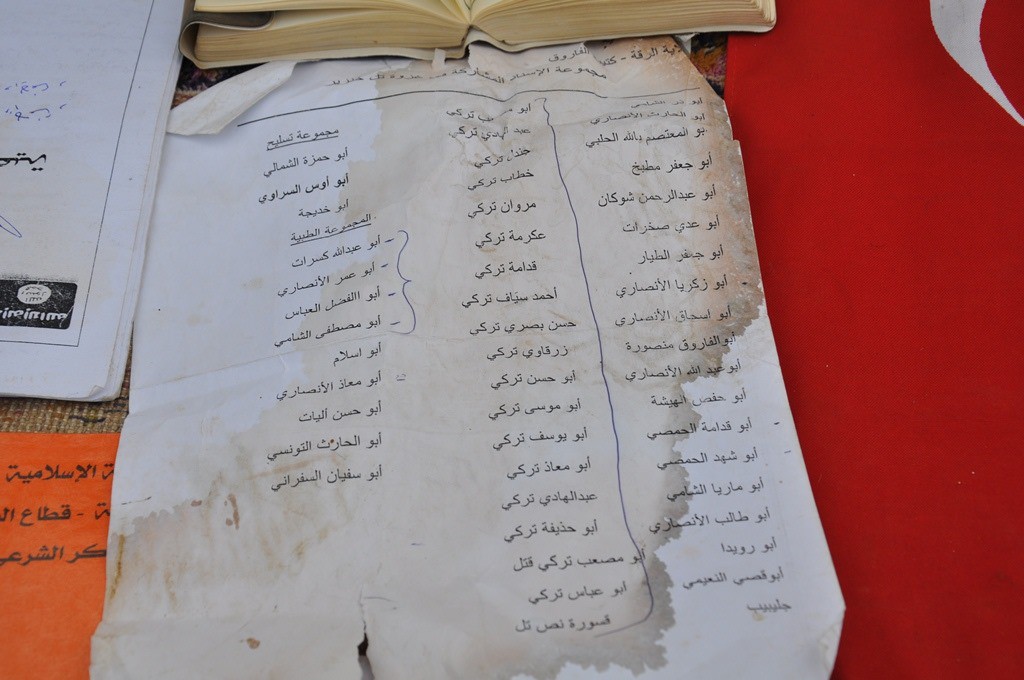 ية الرقة - كتيبة الفاروق
مجموعة الإسناد المشاركة
أبو ذر الشامي
أبو الحارث الأنصاري
أبو المعتصم بالله الحلبي
أبو جعفر مطبخ
أبو عبدالرحمن شوكان
أبو عدي صخرات
أبو جعفر الطيار
أبو زكريا الأنصاري -
أبو اسحاق الأنصاري
أبوالفاروق منصورة
أبوعبد الله الأنصاري
أبو حفص الهيشة
أبو قدامة الحمصي -
أبو شهد الحمصي -
أبو ماريا الشامي
أبو طالب الأنصاري
أبو رويدا
أبوقصي النعيمي
جليبيب
أبو تركي
عبد الهادي تركي
جندل تركي
خطاب تركي
مروان تركي
عكرمة تركي
قدامة تركي
أحمد سياف تركي
حسن بصري تركي
زرقاوي تركي
أبو حسن تركي
أبو موسى تركي
أبو يوسف تركي
أبو معاذ تركي
عبدالهادي تركي
أبو حذيفة تركي
أبو مصعب تركي قتل
أبو عباس تركي
قسورة نص تل
مجموعة تسليح
أبو حمزة الشمالي
أبو أوس السراوي
أبو خديجة
المجموعة الطبية
أبو عبدالله كسرات -
أبو عمر الأنصاري -
أبو االفضل العباس -
أبو مصطفى الشامي -
أبو اسلام
أبو معاذ الأنصاري
أبو حسن أليات
أبو الحارث التونسي
أبو سفيان السفراني
ة الإسلامية
ة - قطاع ال
كر الشرعي